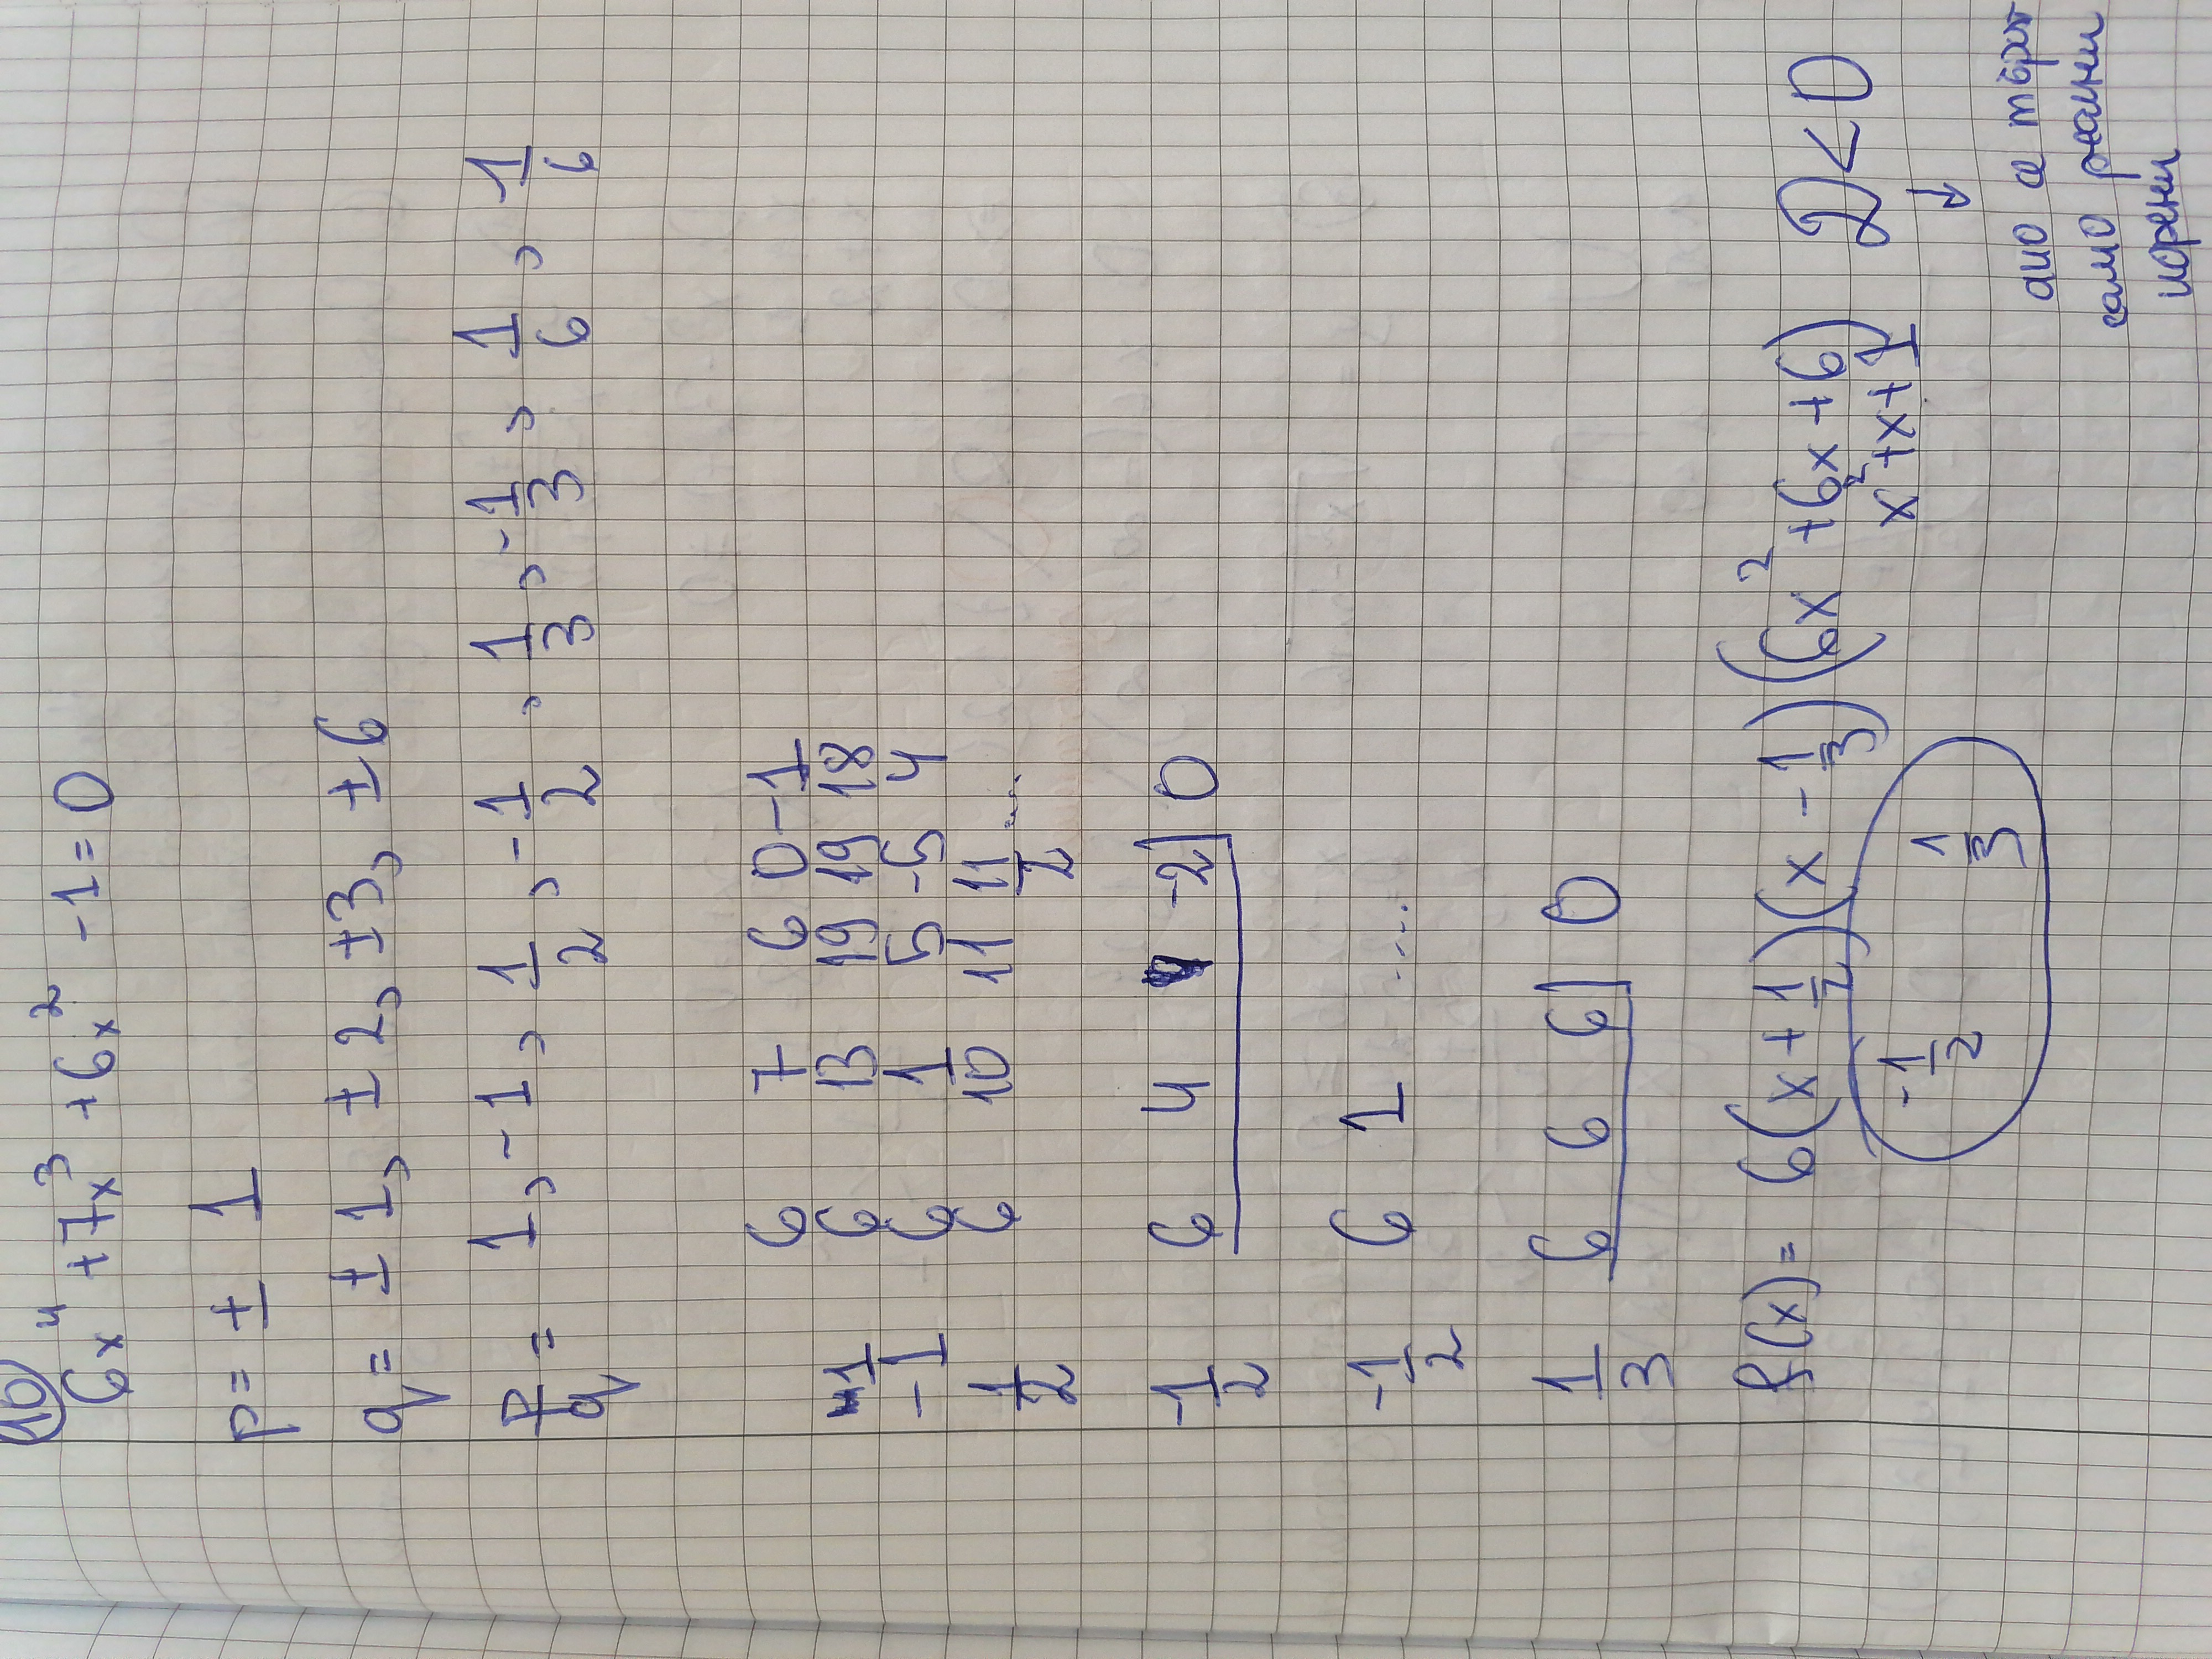 10
6x⁴ +7x³ +6x² -1=0
p= ± 1
q= ± 1, ± 2, ±3, ±6
p/q = 1, -1, 1/2, -1/2, 1/3, -1/3, 1/6, -1/6
6 7 6 0 -1
1 6 13 19 19 18
-1 6 1 5 -5 4
1/2 6 10 11 11/2 ...
-1/2 6 4 -2 0
-1/2 6 1 ....
1/3 6 6 6 0
f(x)= 6(x+1/2)(x-1/3)(6x²+6x+6) D<0
x²+x+1
-1/2 1/3
ако се търсят
само реални
корени